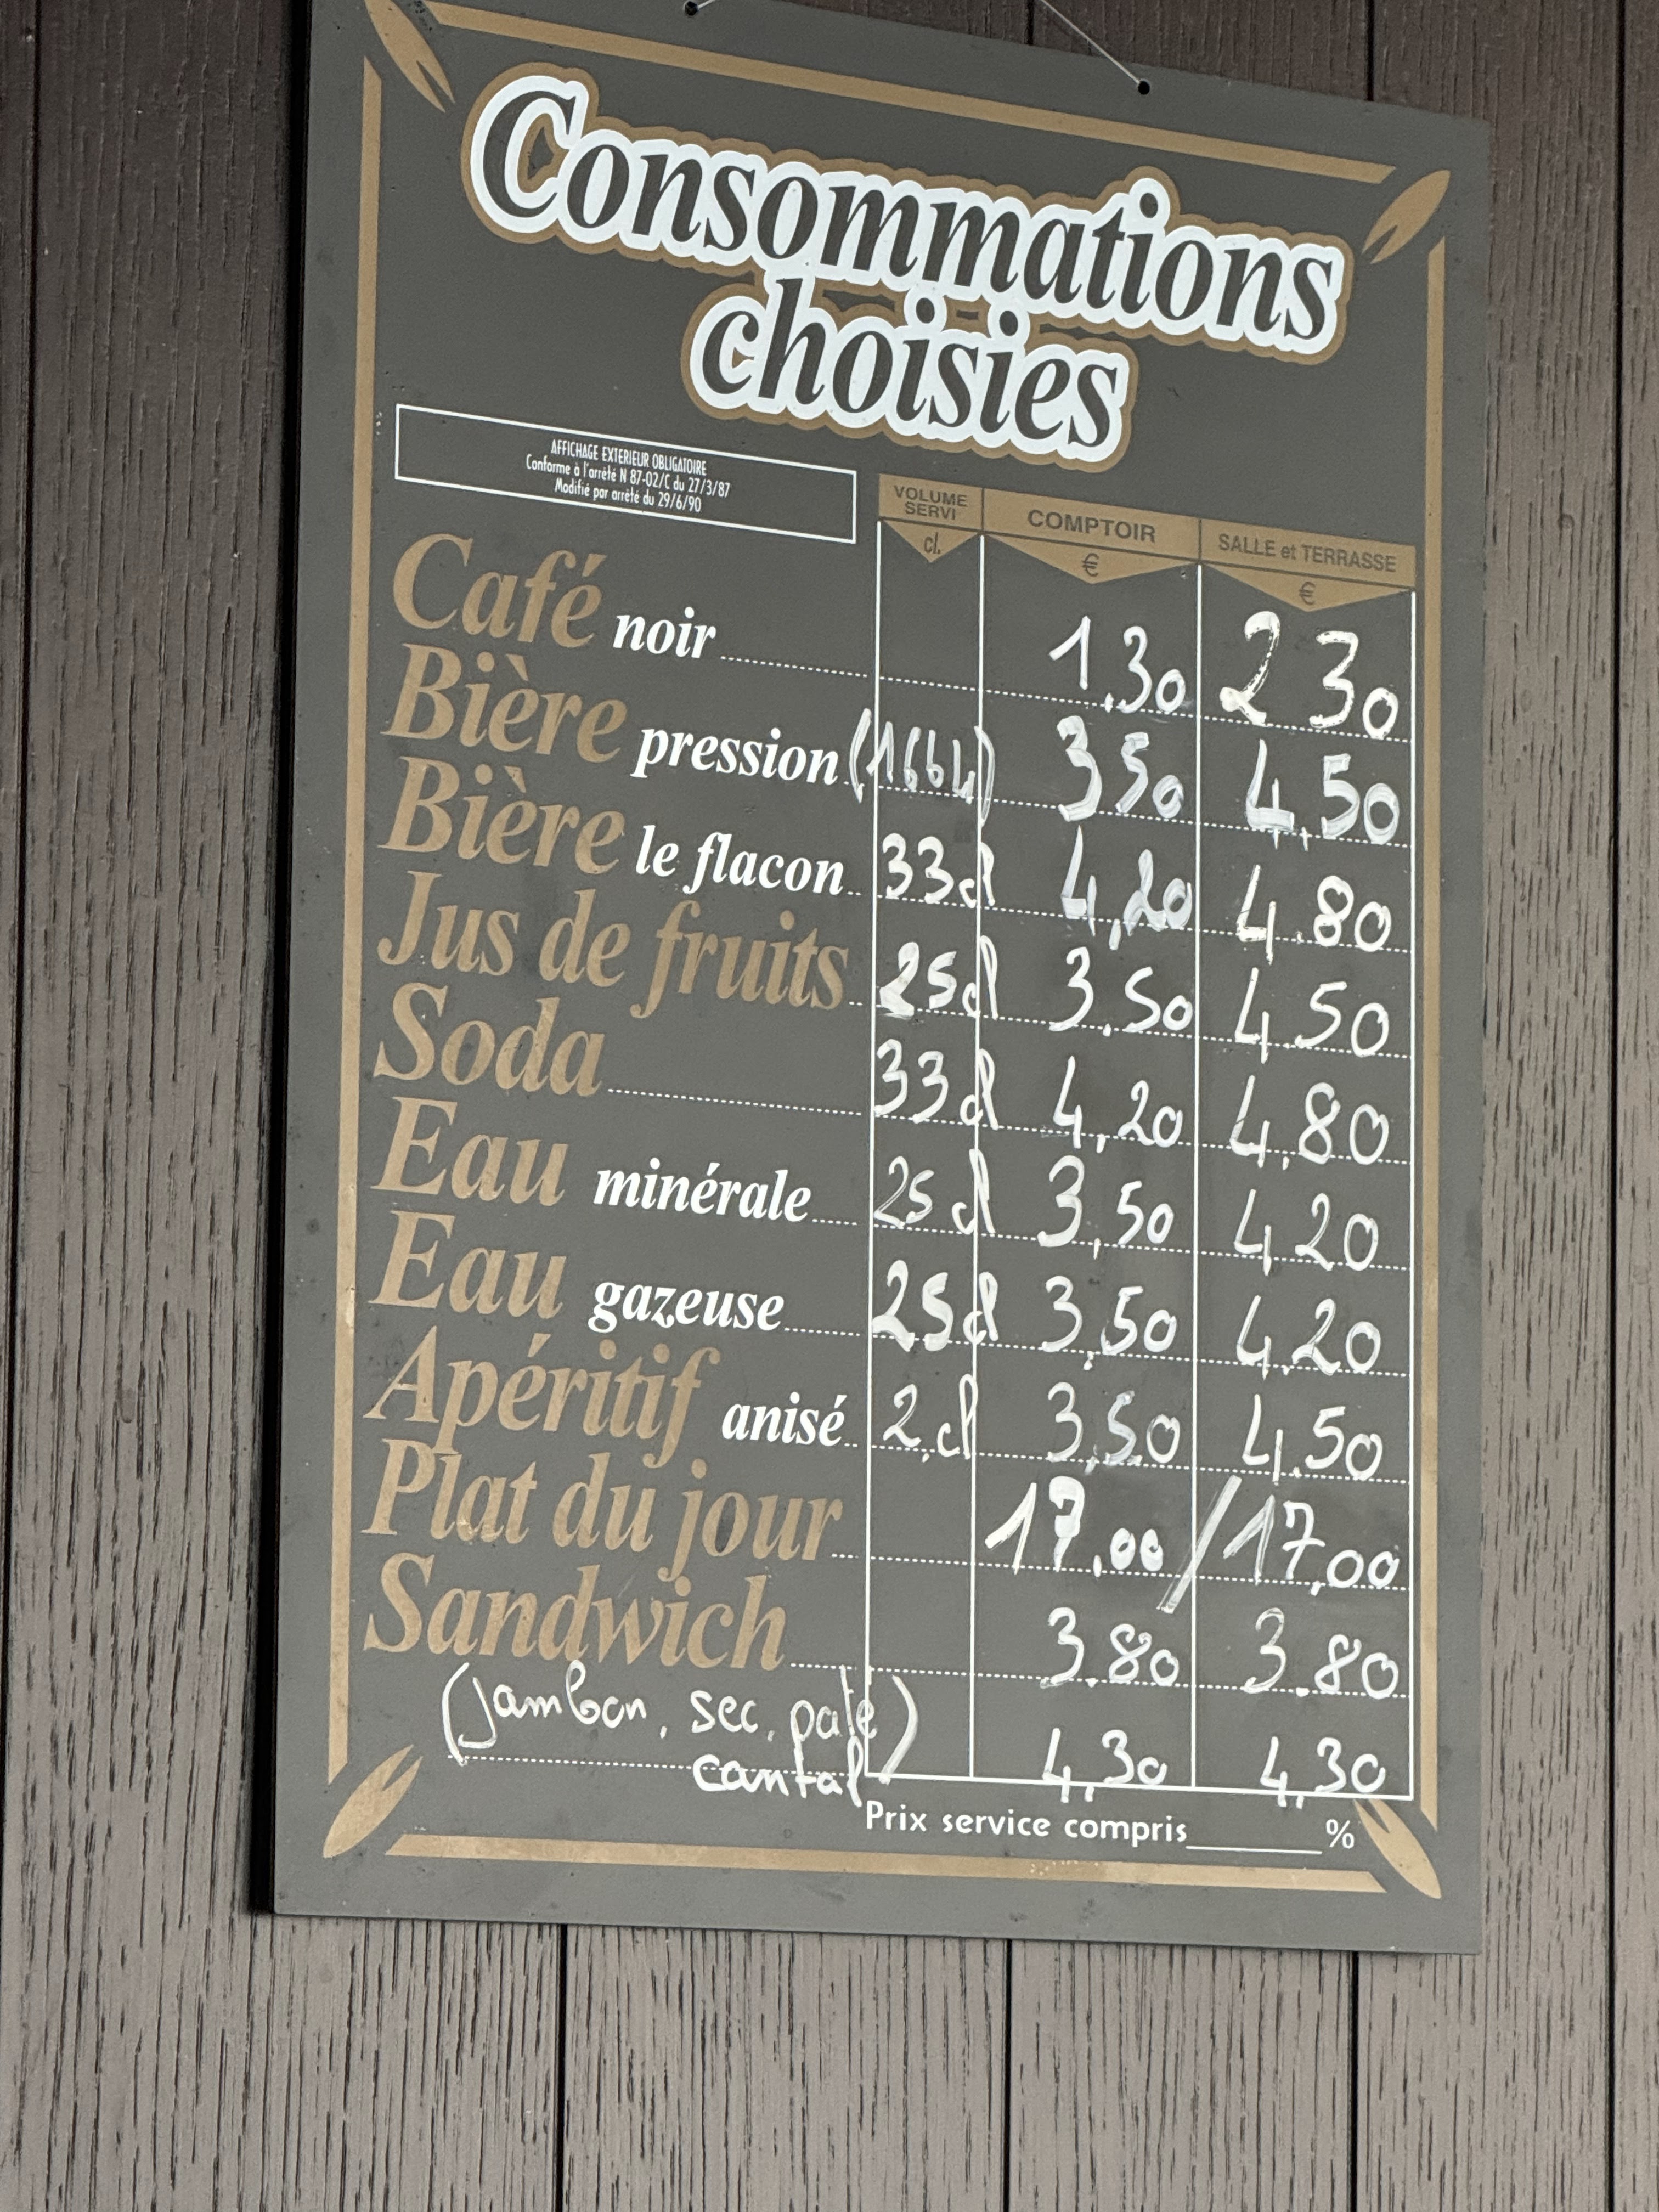 Consommations
choisies
AFFICHAGE EXTERIEUR OBLIGATOIRE
Conforme à l'arrêté N 87-02/C du 27/3/87
Modifié par arrêté du 29/6/90
VOLUME SERVI cl. COMPTOIR € SALLE et TERRASSE €
Café noir 1,30 2 30
Bière pression (1664) 3 50 4,50
Bière le flacon 33cl 4,20 4.80
Jus de fruits 25cl 3.50 4.50
Soda 33cl 4,20 4.80
Eau minérale 25cl 3,50 4.20
Eau gazeuse 25cl 3,50 4.20
Apéritif anisé 2cl 3,50 4.50
Plat du jour 17,00 / 17,00
Sandwich 3.80 3.80
(Jambon, sec, paté)
cantal 4,30 4,30
Prix service compris %